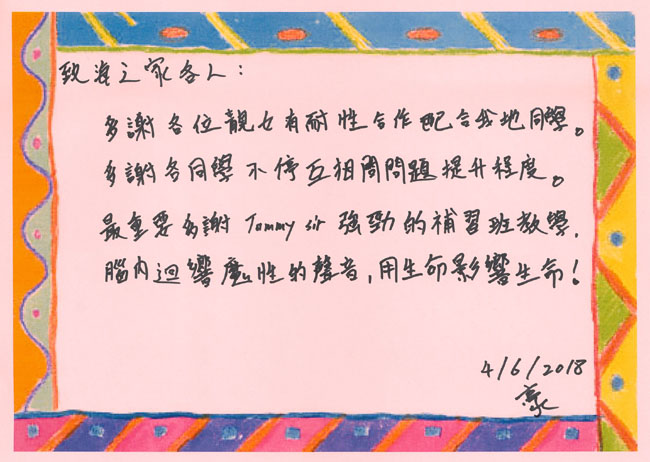 致海之家各人：
多謝各位靚女有耐性合作配合我地同學。
多謝各同學不停互相問問題提升程度。
最重要多謝 Tommy sir 強勁的補習班教學，
腦內迴響魔性的聲音，用生命影響生命！
4/6/2018